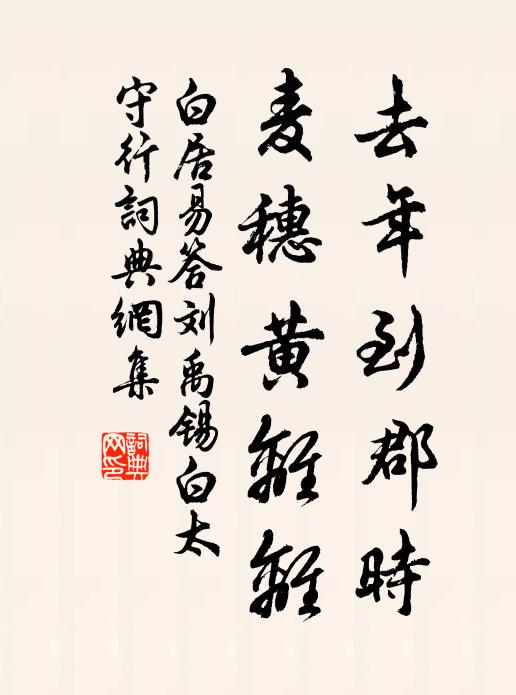 去年到郡時
麦穗黄離離
白居易答刘禹锡白太
守行詞典網集
詞典
网印